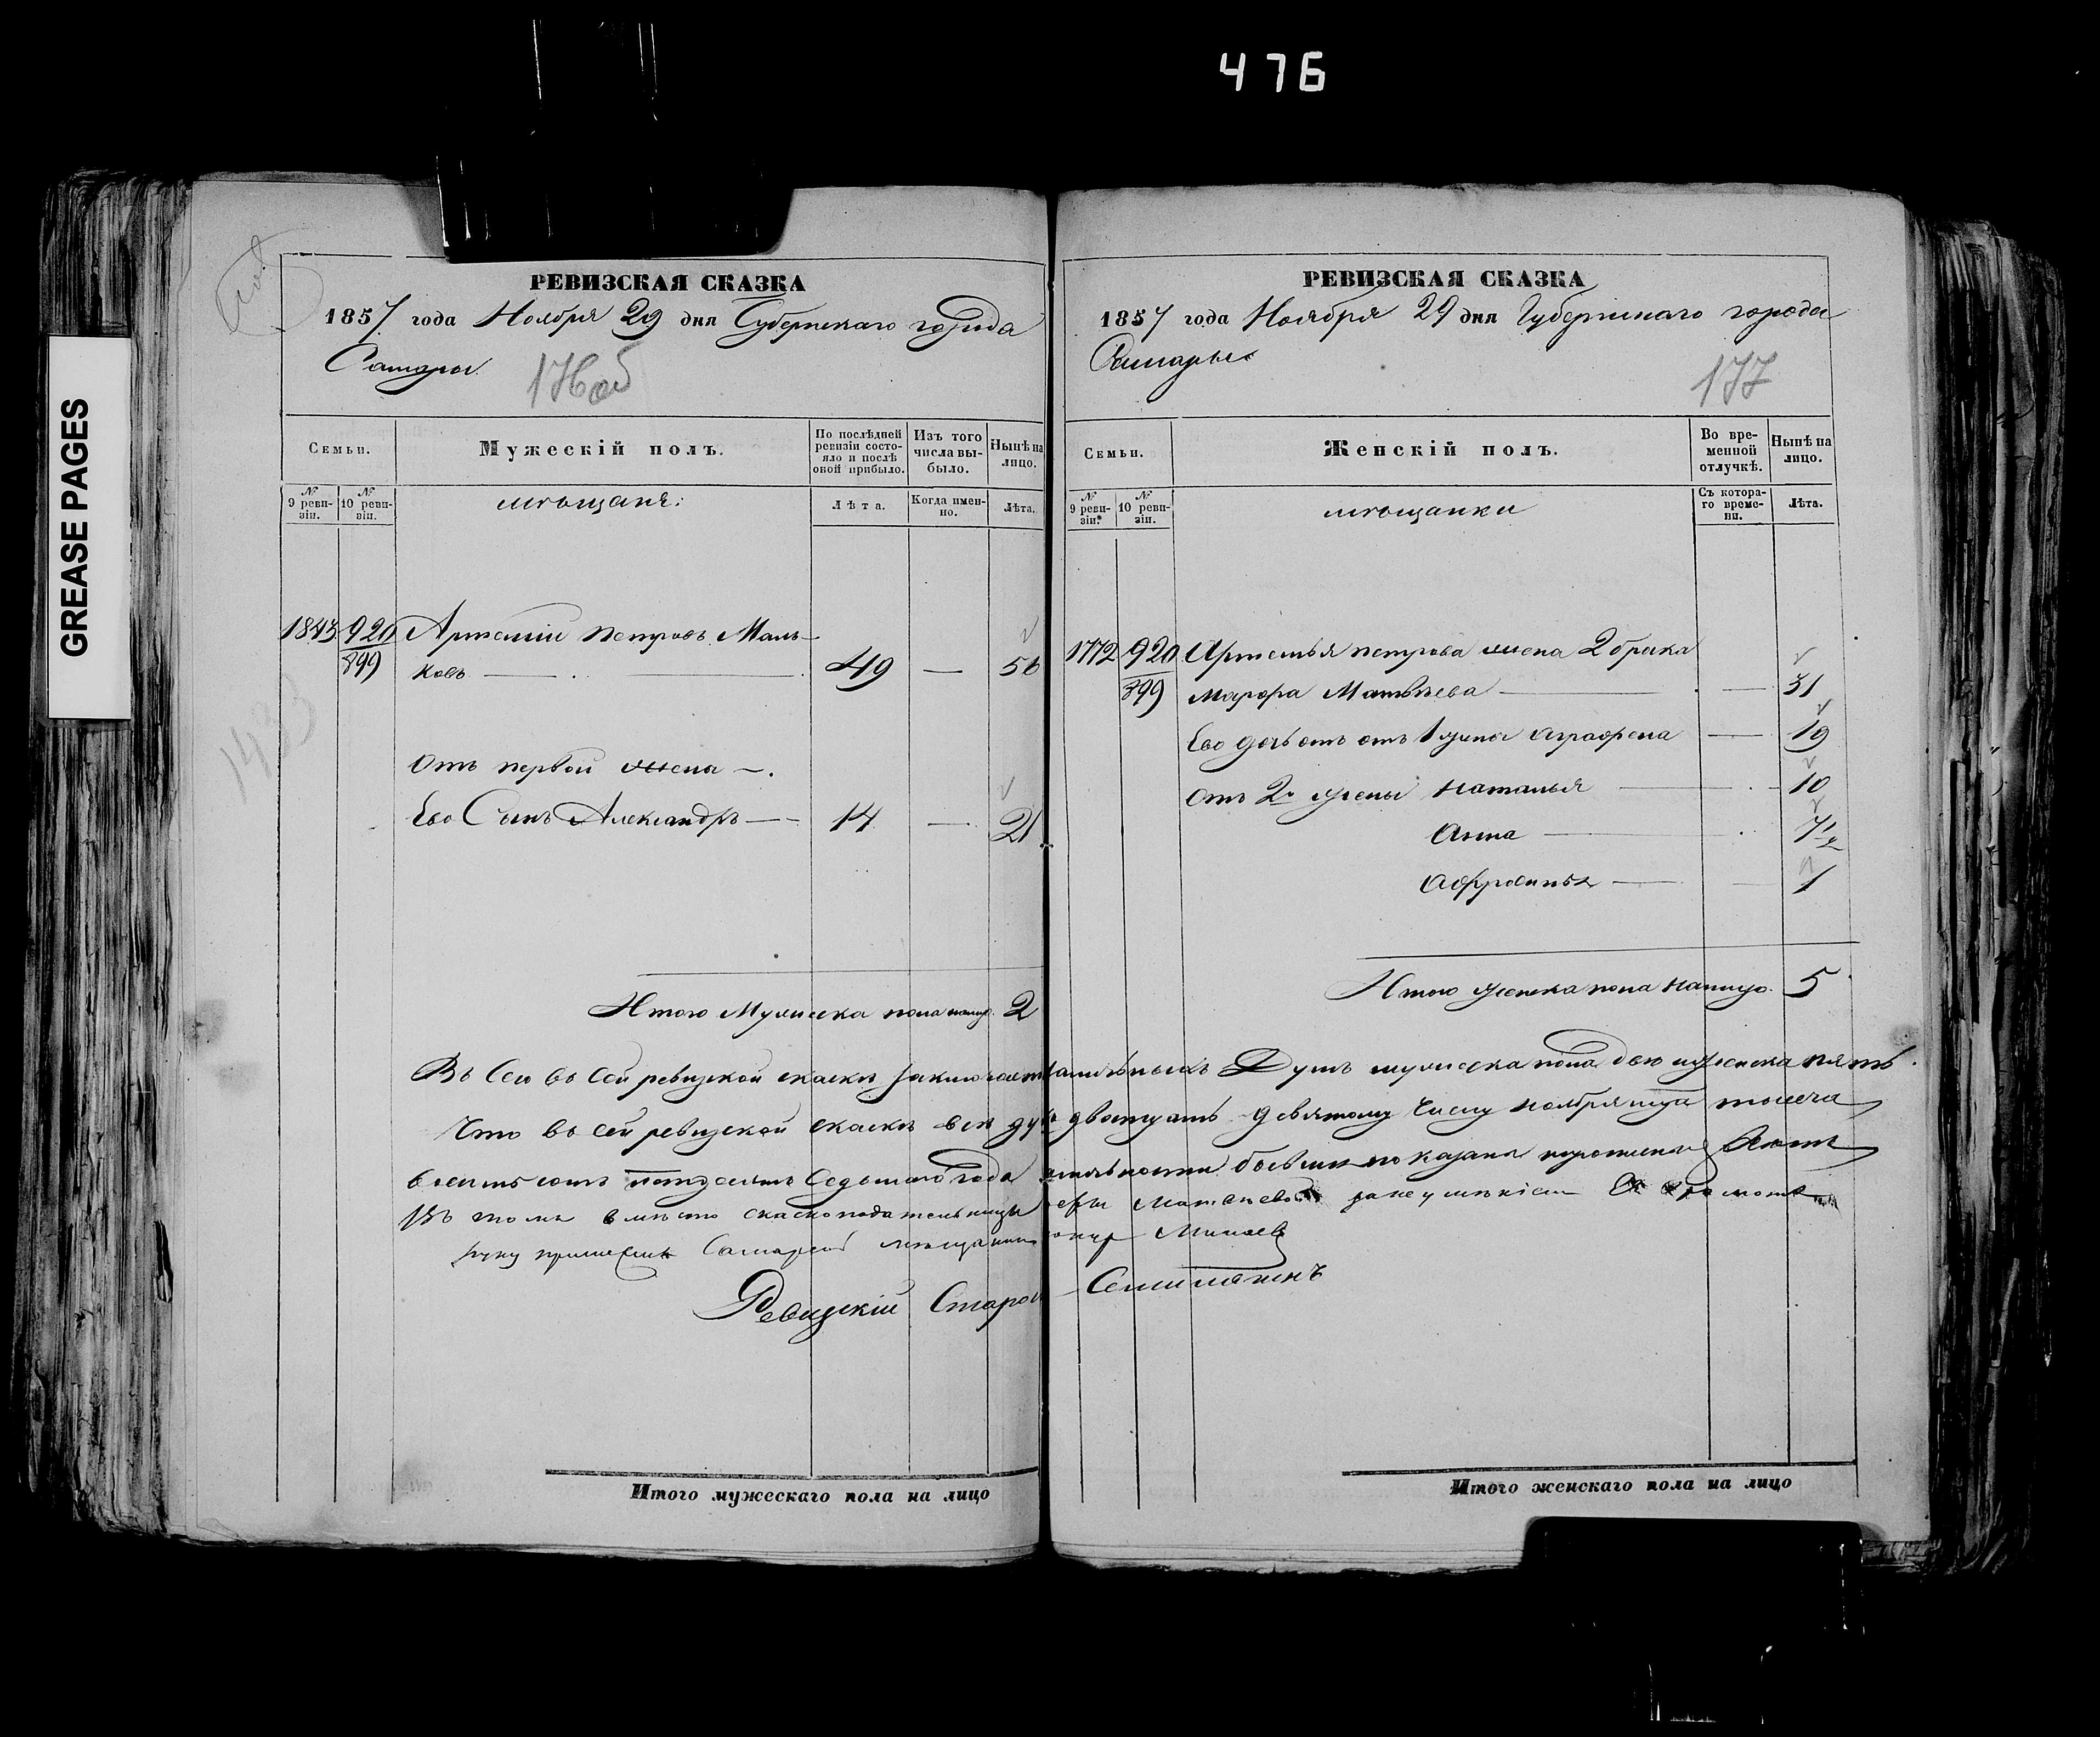 476
GREASE PAGES
РЕВИЗСКАЯ СКАЗКА
1857 года Ноября 29 дня Губернскаго города
Самары
176 об
Семьи.
Мужескій полъ.
По послѣдней ревизіи состояло и послѣ оной прибыло.
Изъ того числа выбыло.
Нынѣ на лицо.
№ 9 ревизіи.
№ 10 ревизіи.
мѣщане:
Лѣта.
Когда именно.
Лѣта.
1843 920 Артемій Петровъ Маль-
899 ковъ 49 — 56
Отъ первой жены
Ево Сынъ Александръ 14 — 21
Итого Мужеска пола налицо 2
Итого мужескаго пола на лицо
РЕВИЗСКАЯ СКАЗКА
1857 года Ноября 29 дня Губернскаго города
Самары
177
Семьи.
Женскій полъ.
Во временной отлучкѣ.
Нынѣ на лицо.
№ 9 ревизіи.
№ 10 ревизіи.
мѣщанки
Съ котораго времени.
Лѣта.
1772 920 Артемья Петрова жена 2 брака
899 Матвѣева — 31
Ево дочь отъ 1 жены Аграфена — 19
Отъ 2й жены Наталья 10
Анна 7 1/2
1
Итого женска пола налицо 5
Всего въ сей ревизской скаскѣ Душъ мужеска пола две женска пять
Что въ сей ревизской скаскѣ все двадцать девятому числу ноября тысеча
восемьсотъ пятдесятъ седьмаго года показаны
Въ томъ вместо скаскоподательницы Матвеевой
руку приложилъ Самарской мещанинъ Минаевъ
Ревизскій Старо
Итого женскаго пола на лицо